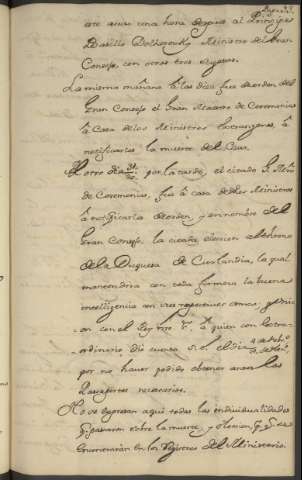 una hora despues al Principe
Basilio Dolhorouky Ministro del Gran
Consejo, con otros tres sugetos.
La misma mañana â las diez fue de orden del
Gran Consejo el Gran Maestro de Ceremonias
â Casa de los Ministros Extrangeros, â
notificarles la muerte del Czar.
El otro dia por la tarde, el citado S.
de Ceremonias, fue â casa de los Ministros
â notificarles de orden, y en nombre del
Gran Consejo, la eleccion al throno
de la Duquesa de Curlandia, la qual
mantendria con cada Corona la buena
inteligencia
on con el Rey nro S.r â quien con Extra-
ordinario diô cuenta S. E. el dia
por no haver podido obtener antes los
Passaportes necesarios.
No se expresan aqui todas las individualidades
q. passaron sobre la muerte, y eleccion, q.
encontrarân en los Registros del Ministerio.